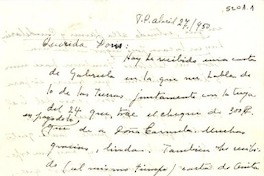 T.P. abril 27/950
Querida Doris:
Hoy he recibido una carta
de Gabriela en la que me habla de
lo de las tierras juntamente con la tuya
del 24 que trae el cheque de 300
que de a Doña Carmela. Muchas
gracias, linda. También he recibi-
do (al mismo tiempo) carta de Anita